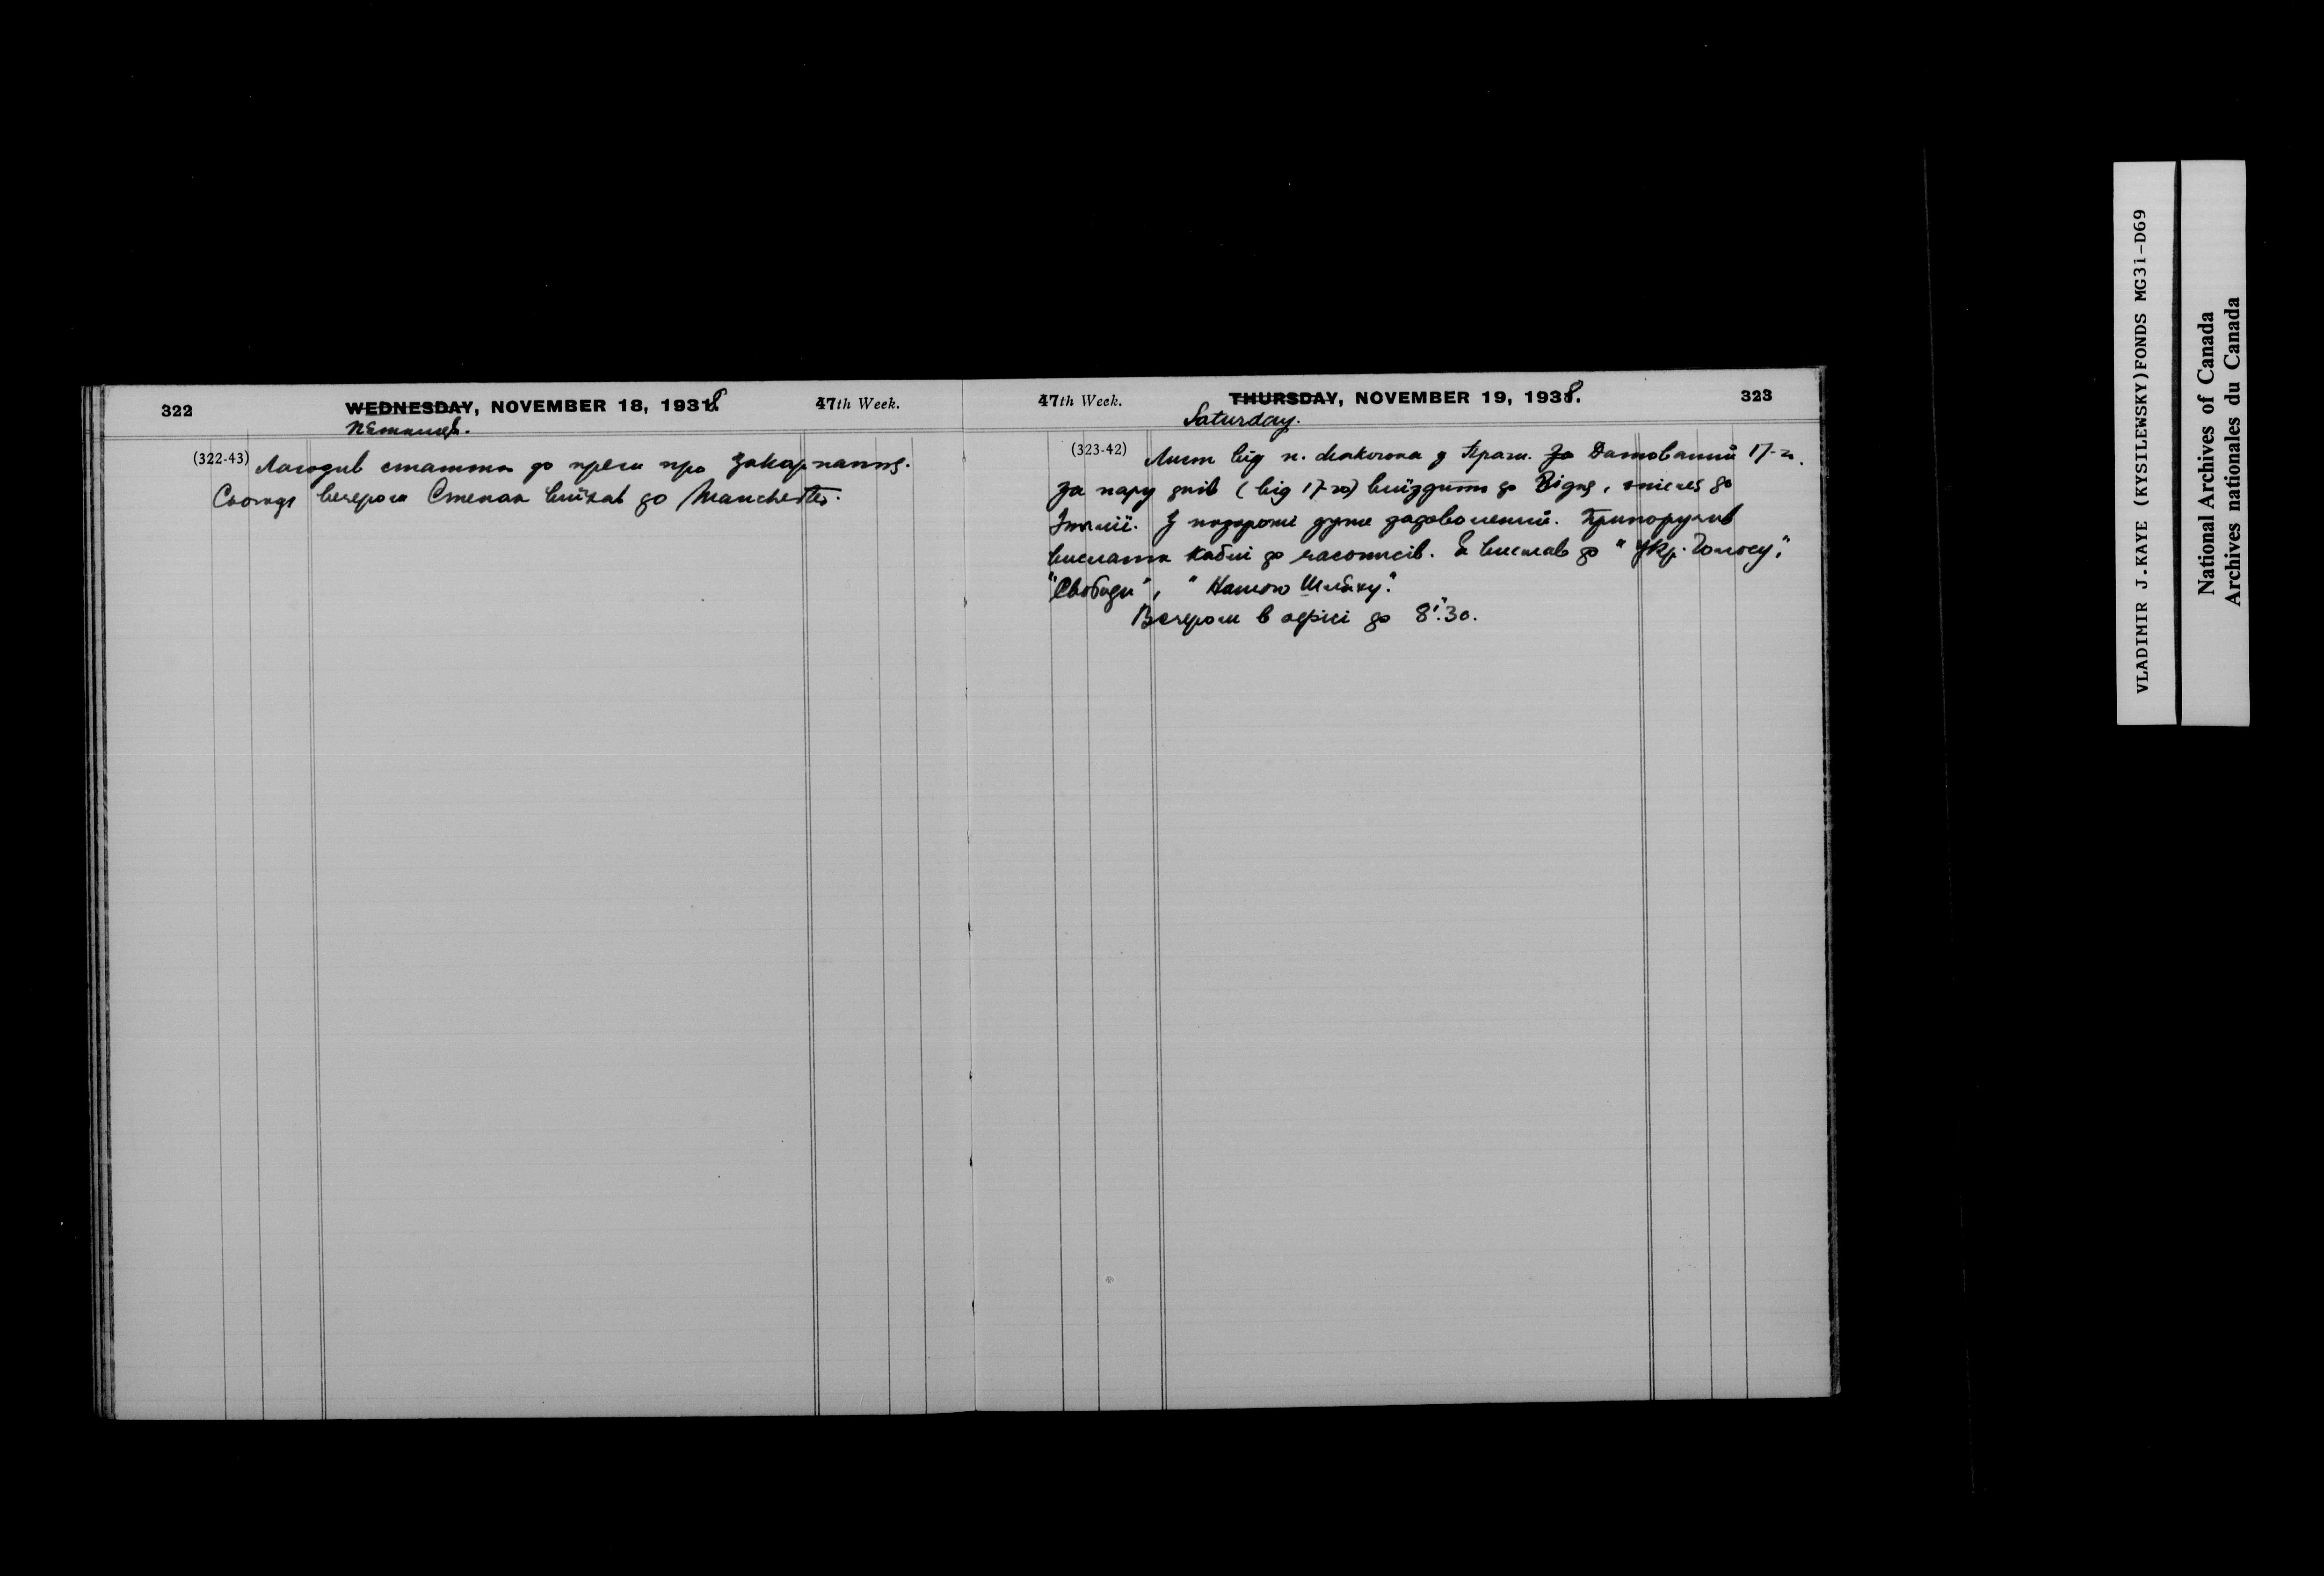 322 WEDNESDAY, NOVEMBER 18, 1938. 47th Week.
Пятниця.
(322-43) Лагодив статти до преси про Закарпаття.
Сьогодн вечером Степан виїхав до Manchester.
47th Week. THURSDAY, NOVEMBER 19, 1938. 323
Saturday.
(323-42) Лист від п. Макогона з Праги. За Датований 17-го.
За пару днів (від 17-го) виїздить до Відня, опісля до
Італії. З подорожі дуже задоволений. Припоручив
вислати каблі до часописів. Я вислав до "Укр. Голосу",
"Свободи", "Нашого Шляху".
Вечером в офісі до 8:30.
VLADIMIR J.KAYE (KYSILEWSKY)FONDS MG31-D69
National Archives of Canada
Archives nationales du Canada